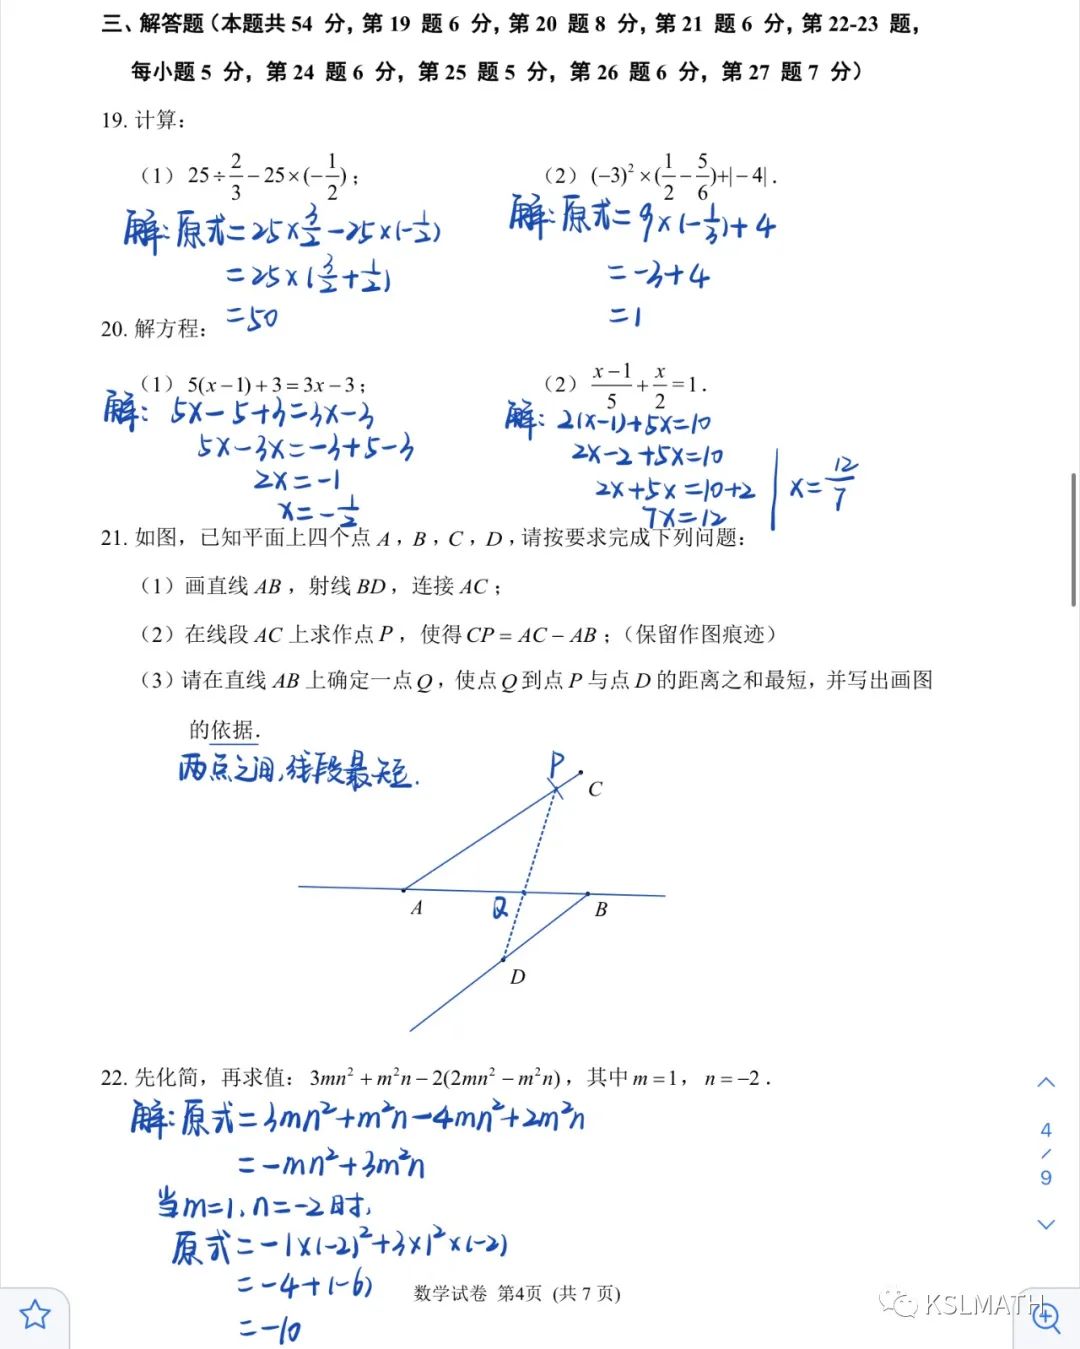 三、解答题（本题共54 分，第19 题6 分，第20 题8 分，第21 题6 分，第22-23 题，
每小题5 分，第24 题6 分，第25 题5 分，第26 题6 分，第27 题7 分）
19. 计算：
（1）25÷2/3−25×(−1/2)；
（2）(−3)²×(1/2−5/6)+|−4|．
解：原式=25×3/2−25×(−1/2)
=25×(3/2+1/2)
=50
解：原式=9×(−1/3)+4
=−3+4
=1
20. 解方程：
（1）5(x−1)+3=3x−3；
（2）(x−1)/5+x/2=1．
解：5x−5+3=3x−3
5x−3x=−3+5−3
2x=−1
x=−1/2
解：2(x−1)+5x=10
2x−2+5x=10
2x+5x=10+2
7x=12
x=12/7
21. 如图，已知平面上四个点A，B，C，D，请按要求完成下列问题：
（1）画直线AB，射线BD，连接AC；
（2）在线段AC上求作点P，使得CP=AC−AB；（保留作图痕迹）
（3）请在直线AB上确定一点Q，使点Q到点P与点D的距离之和最短，并写出画图
的依据．
两点之间，线段最短．
P
C
A
Q
B
D
22. 先化简，再求值：3mn²+m²n−2(2mn²−m²n)，其中m=1，n=−2．
解：原式=3mn²+m²n−4mn²+2m²n
=−mn²+3m²n
当m=1，n=−2时，
原式=−1×(−2)²+3×1²×(−2)
=−4+(−6)
=−10
数学试卷 第4页 (共7页)
4
/
9
KSLMATH